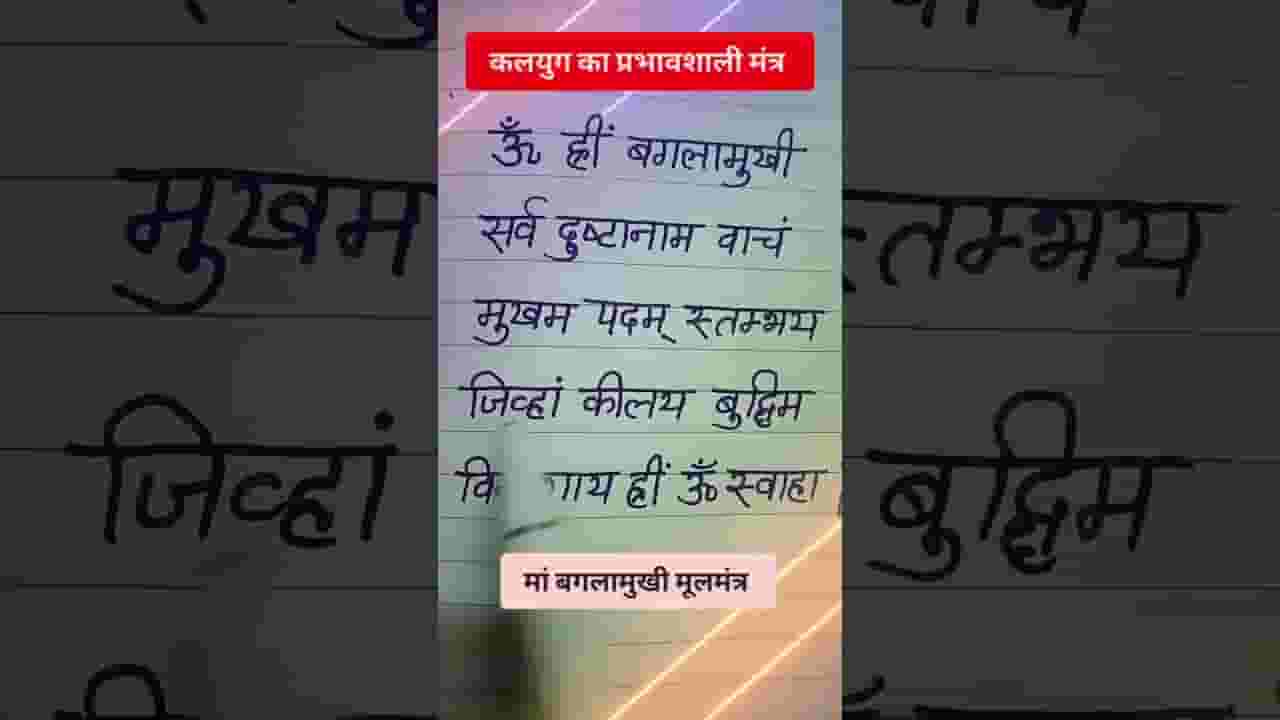 कलयुग का प्रभावशाली मंत्र
ॐ ह्रीं बगलामुखी
सर्व दुष्टानाम वाचं
मुखम पदम् स्तम्भय
जिव्हां कीलय बुद्धिम
ह्रीं ॐ स्वाहा
मां बगलामुखी मूलमंत्र